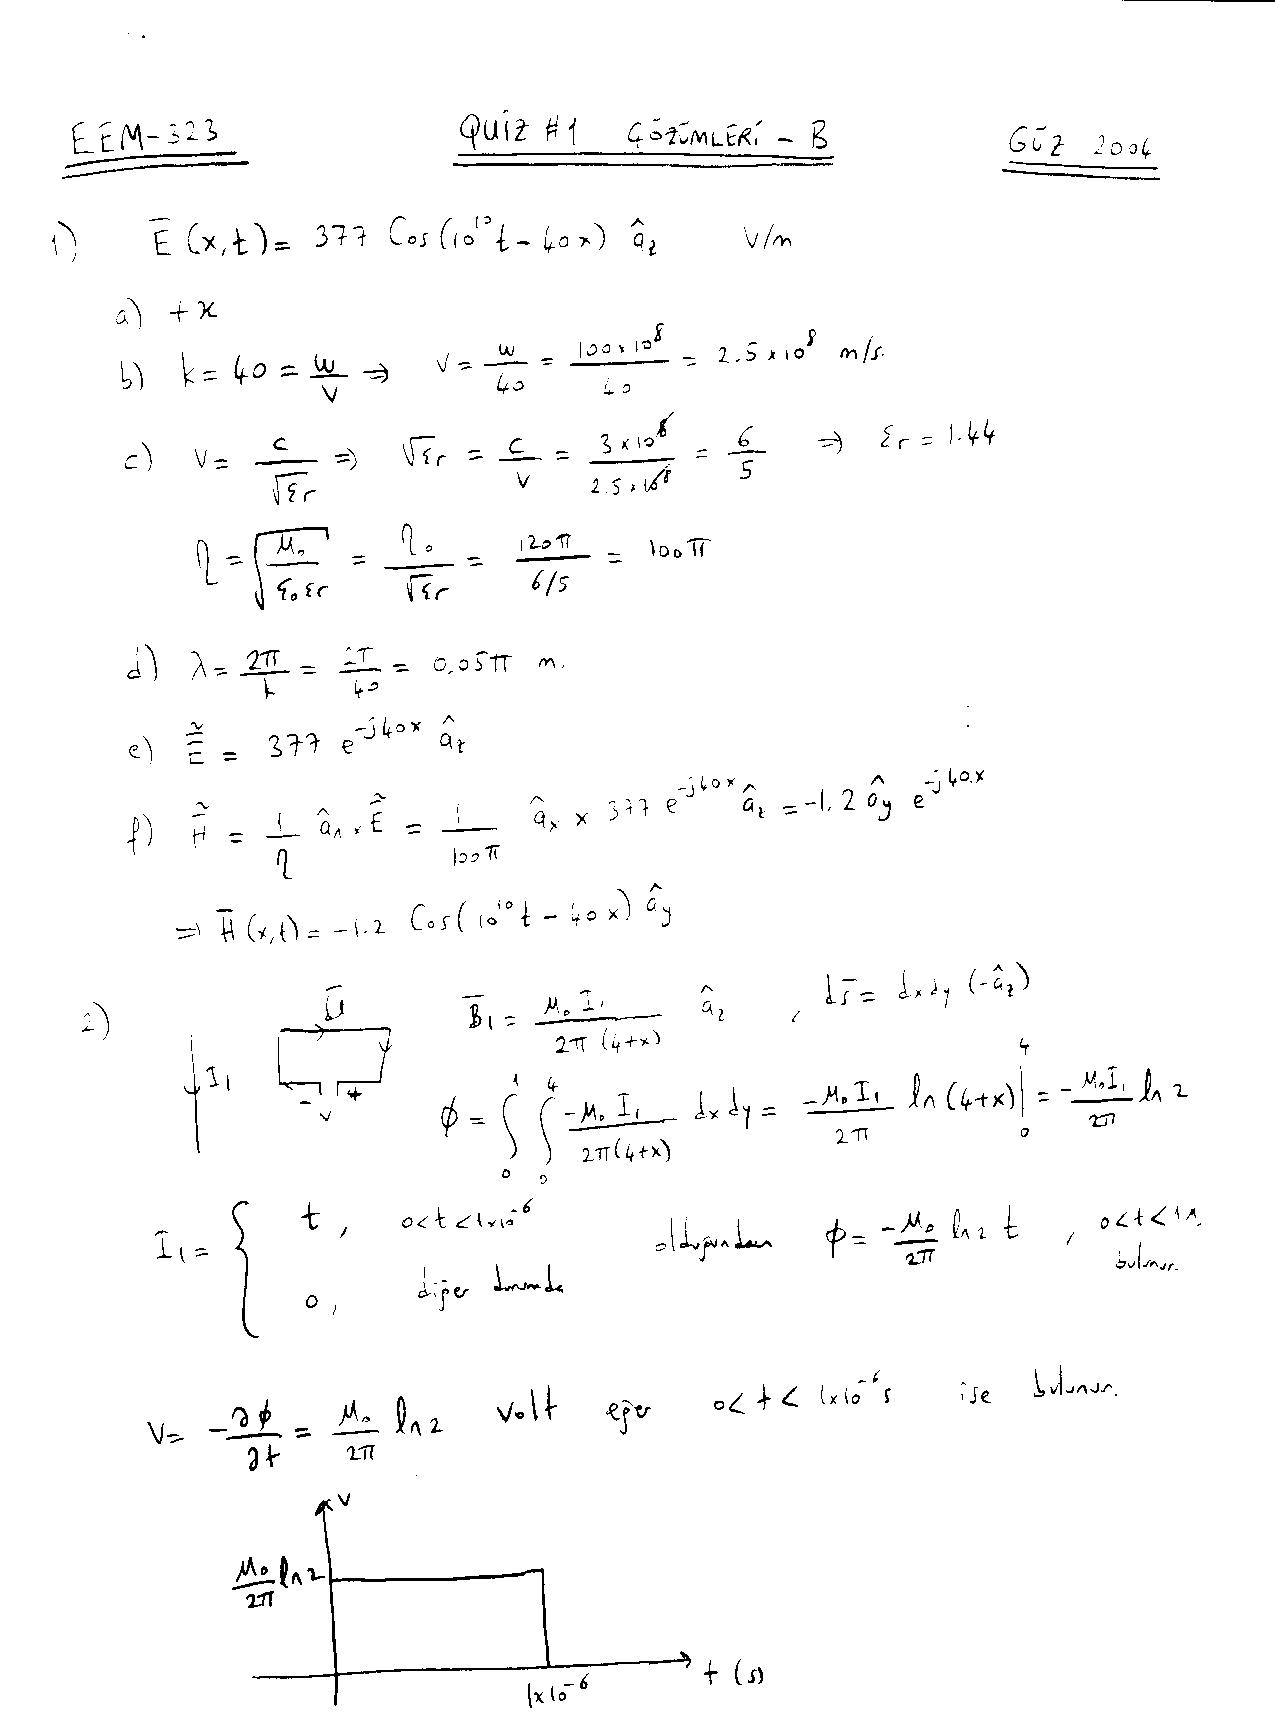 EEM-323 QUİZ #1 ÇÖZÜMLERİ - B GÜZ 2004
1) E̅(x,t) = 377 Cos(10¹⁰t - 40x) â_z V/m
a) +x
b) k = 40 = w/v ⇒ v = w/40 = 100x10⁸/40 = 2.5x10⁸ m/s.
c) v = c/√εr ⇒ √εr = c/v = 3x10⁸/2.5x10⁸ = 6/5 ⇒ εr = 1.44
η = √(μ₀/ε₀εr) = η₀/√εr = 120π/(6/5) = 100π
d) λ = 2π/k = 2π/40 = 0,05π m.
e) Ẽ = 377 e^(-j40x) â_z
f) H̃ = 1/η â_n x Ẽ = 1/100π â_x x 377 e^(-j40x) â_z = -1.2 â_y e^(-j40x)
⇒ H̅(x,t) = -1.2 Cos(10¹⁰t - 40x) â_y
2) I₁ - v + B̅₁ = μ₀I₁/2π(4+x) â_z , ds̅ = dxdy (-â_z)
φ = ∫₀¹ ∫₀⁴ -μ₀I₁/2π(4+x) dxdy = -μ₀I₁/2π ln(4+x)|₀⁴ = -μ₀I₁/2π ln2
I₁ = { t, 0<t<1x10⁻⁶ olduğundan φ = -μ₀/2π ln2 t , 0<t<1μ. bulunur.
0, diğer durumda
V = -∂φ/∂t = μ₀/2π ln2 volt eğer 0<t<1x10⁻⁶s ise bulunur.
V
μ₀/2π ln2
1x10⁻⁶ t (s)